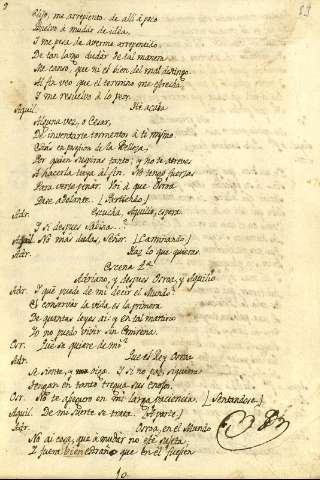 Elijo, me arrepiento: de allí á poco
Vuelvo á mudar de idea,
I me pesa de averme arrepentido.
De tan largo dudar de tal manera
Me canso, que ni el bien del mal distingo.
Al fin veo que el termino me estrecha,
I me resuelvo á lo peor.
Aquil. He acaba
Alguna vez, o César,
De inventarte tormentos á ti mismo.
Estás en posesion de la Belleza,
Por quien suspiras tanto; y no te atreves
A hacerla tuya al fin. No tengo fuerzas
Para verte penar. Voi á que Osroa
Dese adelante. (Partiendo)
Adr. Escucha, Aquilio, espera.
Y si despues Sabina...?
Aquil. No más dudas, Señor. (Caminando)
Adr. Haz lo que quieras.
Escena 2.a
Adriano, y despues Osroa, y Aquilio
Adr. I qué puede de mi decir el Mundo?
El conservar la vida es la primera
De quantas leyes ai: y en tal martirio
Yo no puedo vivir sin Emirena.
Osr. Qué se quiere de mi?
Adr. Que el Rey Osroa
Se siente, y me oiga. I si no paz, siquiera
Tengan en tanto tregua sus enojos.
Osr. No te aseguro en mi larga paciencia. (Sentandose)
Aquil. De mi suerte se trata. (Aparte)
Adr. Osroa, en el Mundo
No ai cosa, que á mudar no esté sujeta,
I fuera bien estraño que en él fuesen
10